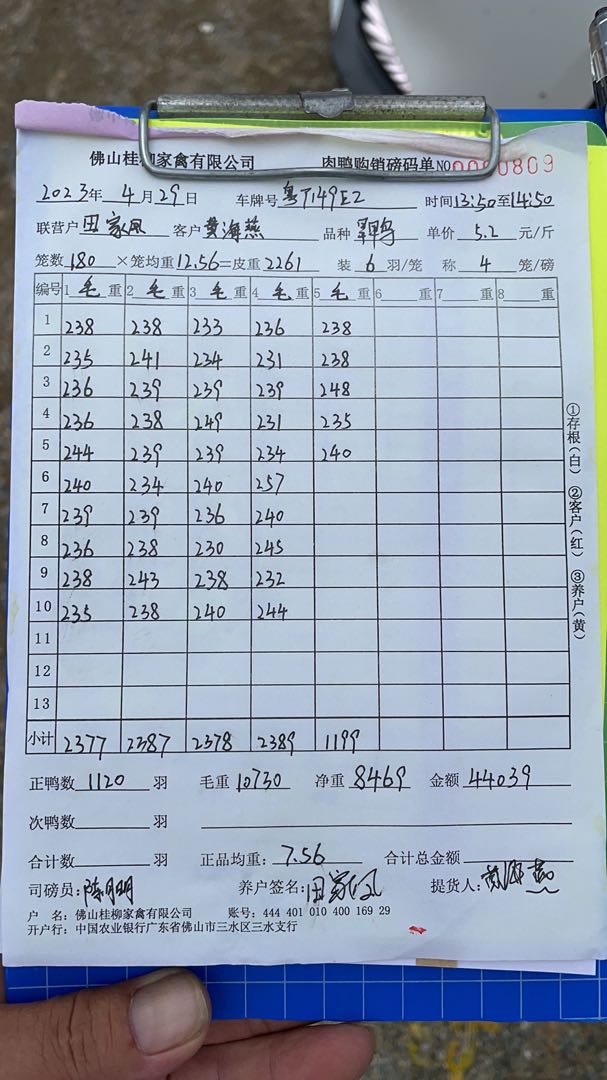 佛山桂柳家禽有限公司 肉鸭购销磅码单 NO 0000809
2023年 4月29日 车牌号 粤T149E2 时间13:50至14:50
联营户 田家凤 客户 黄海燕 品种 鸭 单价 5.2 元/斤
笼数 180 ×笼均重 12.56=皮重 2261 装 6 羽/笼 称 4 笼/磅
编号 1 毛 重 2 毛 重 3 毛 重 4 毛 重 5 毛 重 6 重 7 重 8 重
1 238 238 233 236 238
2 235 241 234 231 238
3 236 239 239 239 248
4 236 238 249 231 235
5 244 239 239 234 240
6 240 234 240 257
7 239 239 236 240
8 236 238 230 245
9 238 243 238 232
10 235 238 240 244
11
12
13
小计 2377 2387 2378 2389 1199
①存根(白) ②客户(红) ③养户(黄)
正鸭数 1120 羽 毛重 10730 净重 8469 金额 44039
次鸭数 羽
合计数 羽 正品均重: 7.56 合计总金额
司磅员: 陈月明 养户签名: 田家凤 提货人: 黄海燕
户 名: 佛山桂柳家禽有限公司 账号: 444 401 010 400 169 29
开户行: 中国农业银行广东省佛山市三水区三水支行